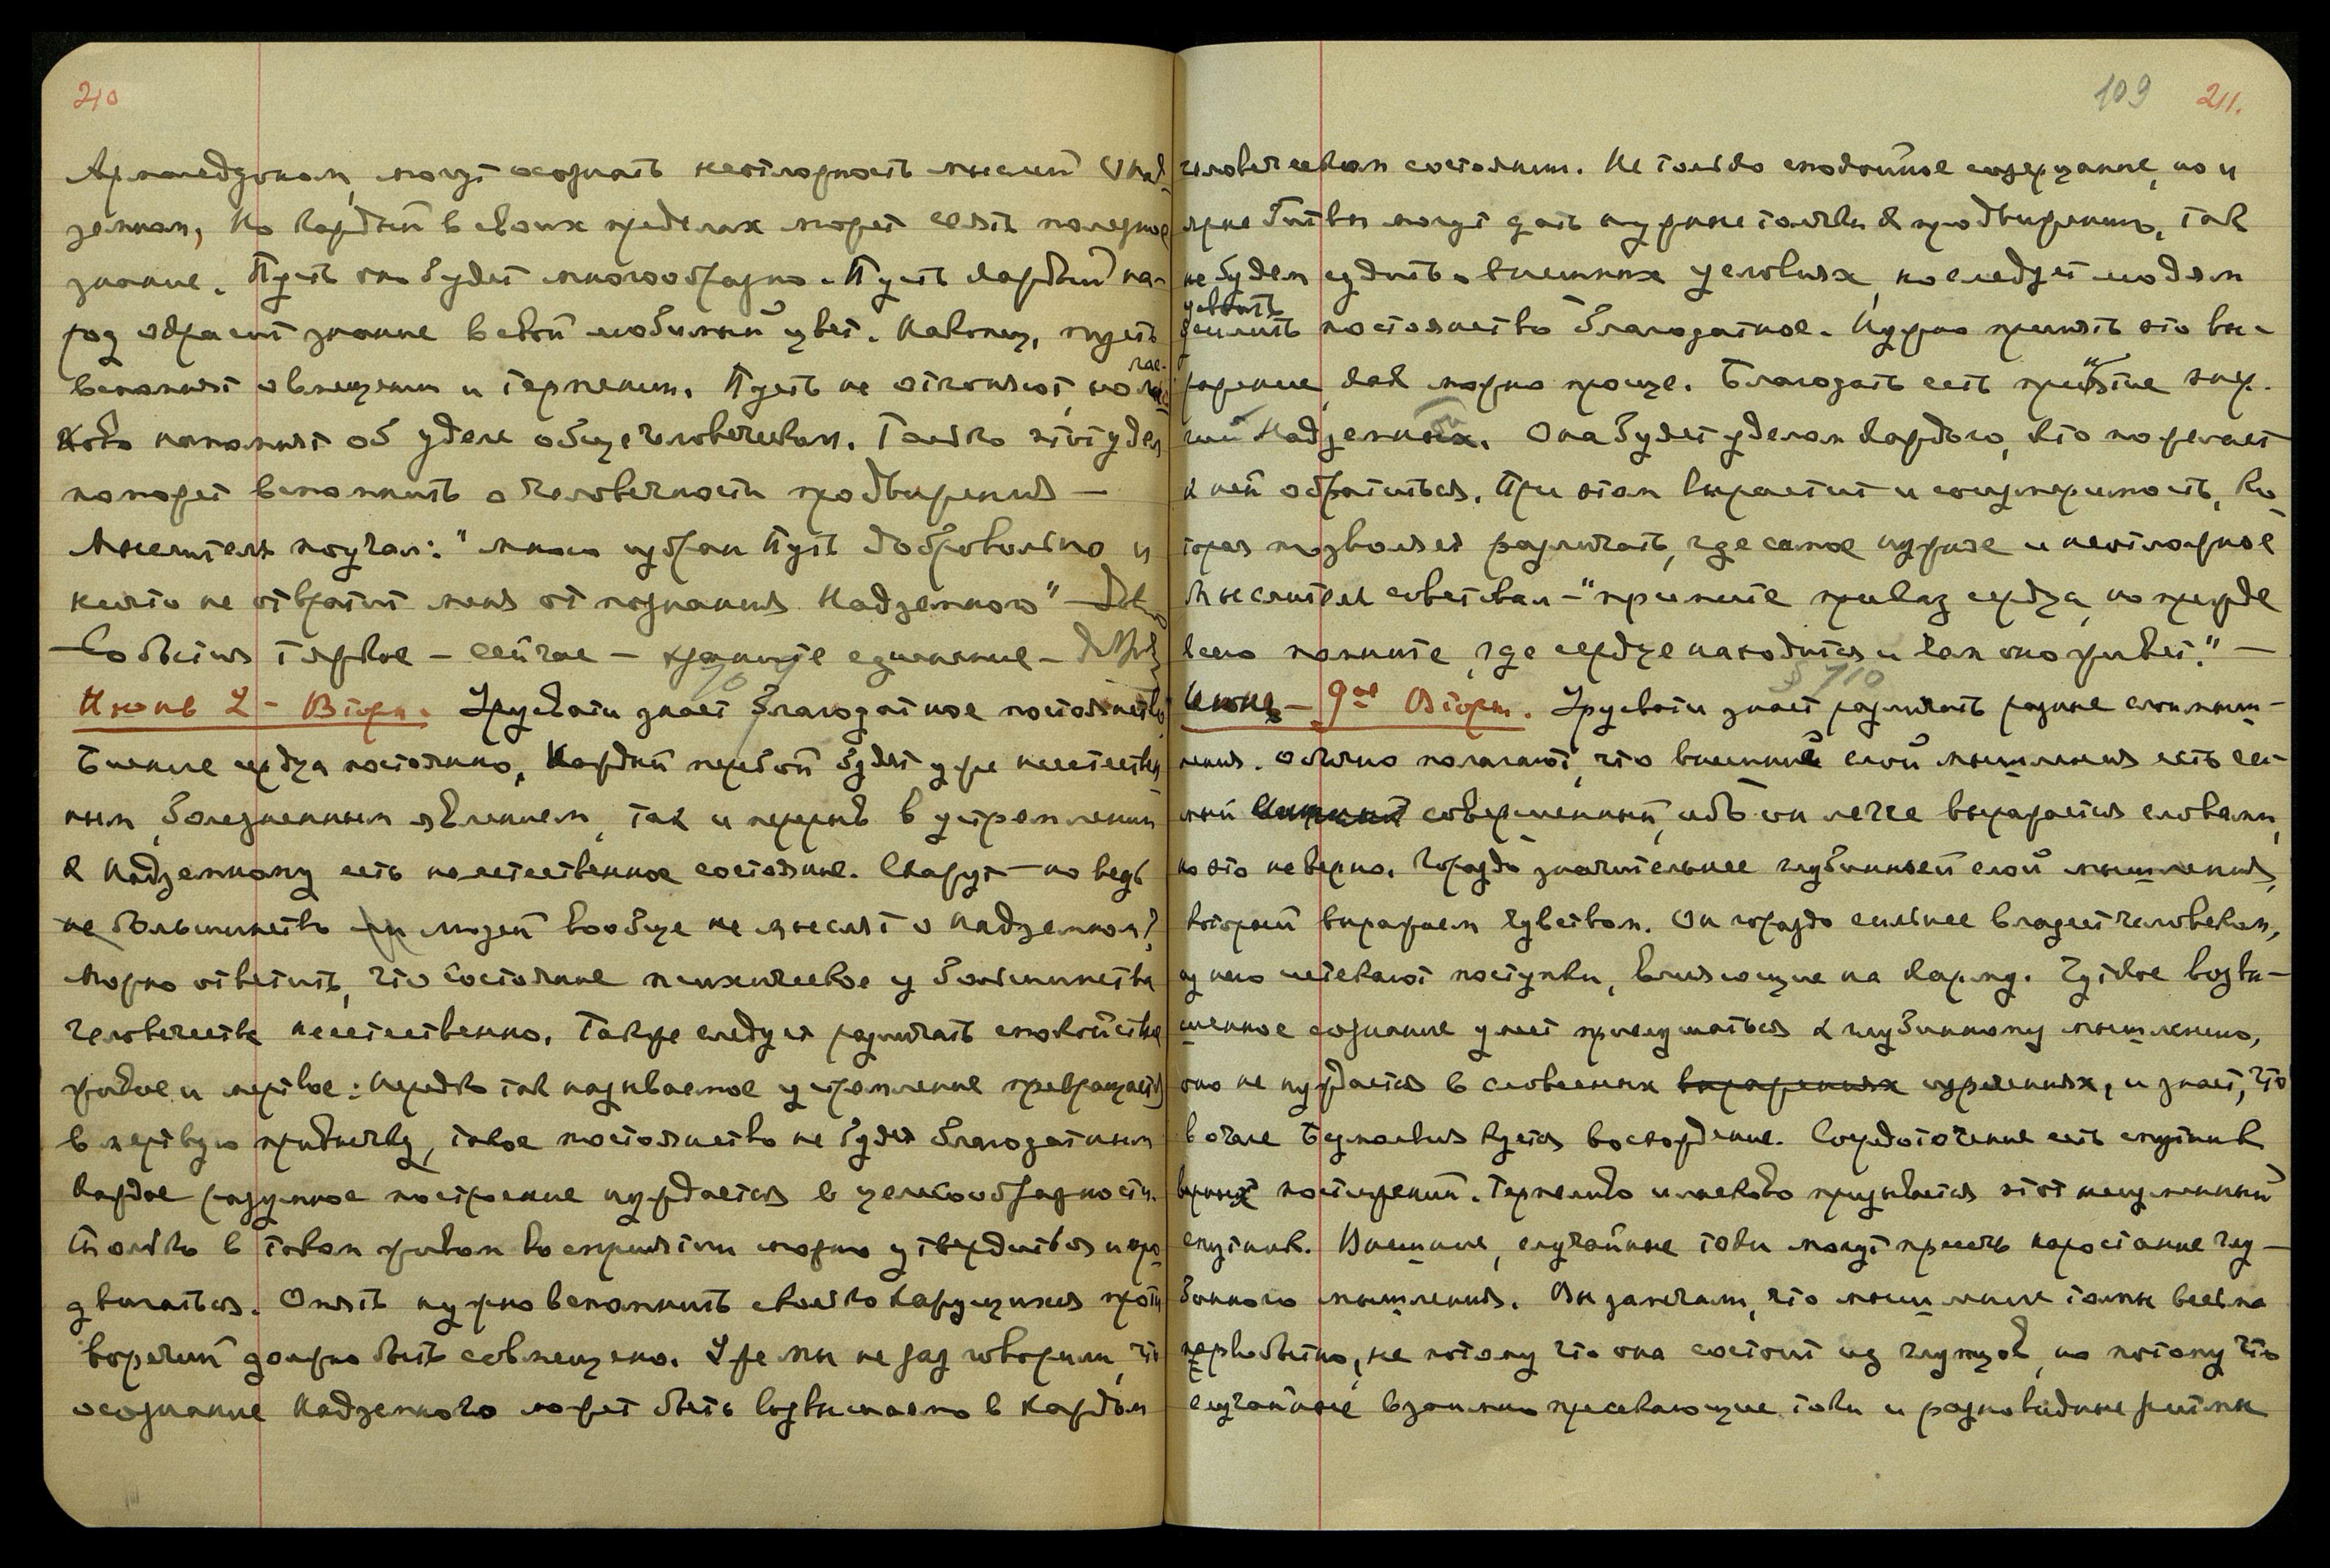 210
Армагеддоном, могут осознать неотложность мыслей о Над-
земном, но каждый в своих пределах может сеять полезное
знание. Пусть оно будет многообразно. Пусть каждый на-
род окрасит знание в свой любимый цвет. Наконец, пусть
вспомнят о вмещении и терпении. Пусть не отгоняют, но лас-
ково напомнят об уделе общечеловеческом. Только этот удел
поможет вспомнить о человечности продвижения —
Мыслитель поучал: "мною избран Путь добровольно и
никто не отвратит меня от познания Надземного" —
— События тяжкие — сейчас — храните единение —
Июнь 2 - Вторн. Урусвати знает благодатное постоянство.
Биение сердца постоянно, каждый перебой будет уже неестествен-
ным, болезненным явлением, так и перерыв в устремлении
к Надземному есть неестественное состояние. Скажут — но ведь
не большинство ли людей вообще не мыслят о Надземном?
Можно ответить, что состояние психическое у большинства
человечества неестественно. Также следует различать спокойствие
живое и мертвое. Нередко так называемое устремление превращается
в мертвую привычку, такое постоянство не будет благодатным
Каждое разумное построение нуждается в целесообразности.
Только в таком живом восприятии можно утвердиться и про-
двигаться. Опять нужно вспомнить сколько кажущихся проти-
воречий должно быть совмещено. Уже мы не раз говорили, что
осознание Надземного может быть возвышаемо в каждом
109 211.
человеческом состоянии. Не только спокойное созерцание, но и
ярые битвы могут дать нужные толчки к продвижению, так
не будем судить о внешних условиях, но следует людям
усвоить
постоянство благодатное. Нужно принять это вы-
ражение, как можно проще. Благодать есть приятие энер-
гий Надземных. Она будет уделом каждого, кто пожелает
к ней обратиться. При этом вырастит и соизмеримость, ко-
торая позволяет различать, где самое нужное и неотложное
Мыслитель советовал — "примите приказ сердца, но прежде
всего помните, где сердце находится и чем оно живет." —
§ 710
Июнь — 9ое Вторн. Урусвати знает различать разные слои мышле-
ния. Обычно полагают, что внешний слой мышления есть са-
мый совершенный, ибо он легче выражается словами,
но это неверно. Гораздо значительнее глубинный слой мышления,
который выражаем чувством. Он гораздо сильнее владеет человеком,
из него истекают поступки, влияющие на карму. Чуткое возвы-
шенное сознание умеет прислушаться к глубинному мышлению,
оно не нуждается в словесных выражениях изречениях, и знает, что
в очаге Безмолвия куется восхождение. Сосредоточение есть спутник
верных постижений. Терпеливо и ласково призывается этот неизменный
спутник. Внешние, случайные токи могут пресечь нарастание глу-
бинного мышления. Вы замечали, что мышление толпы весьма
первобытно, не потому что она состоит из глупцов, но потому что
случайные взаимно пресекающие токи и разновидные ритмы